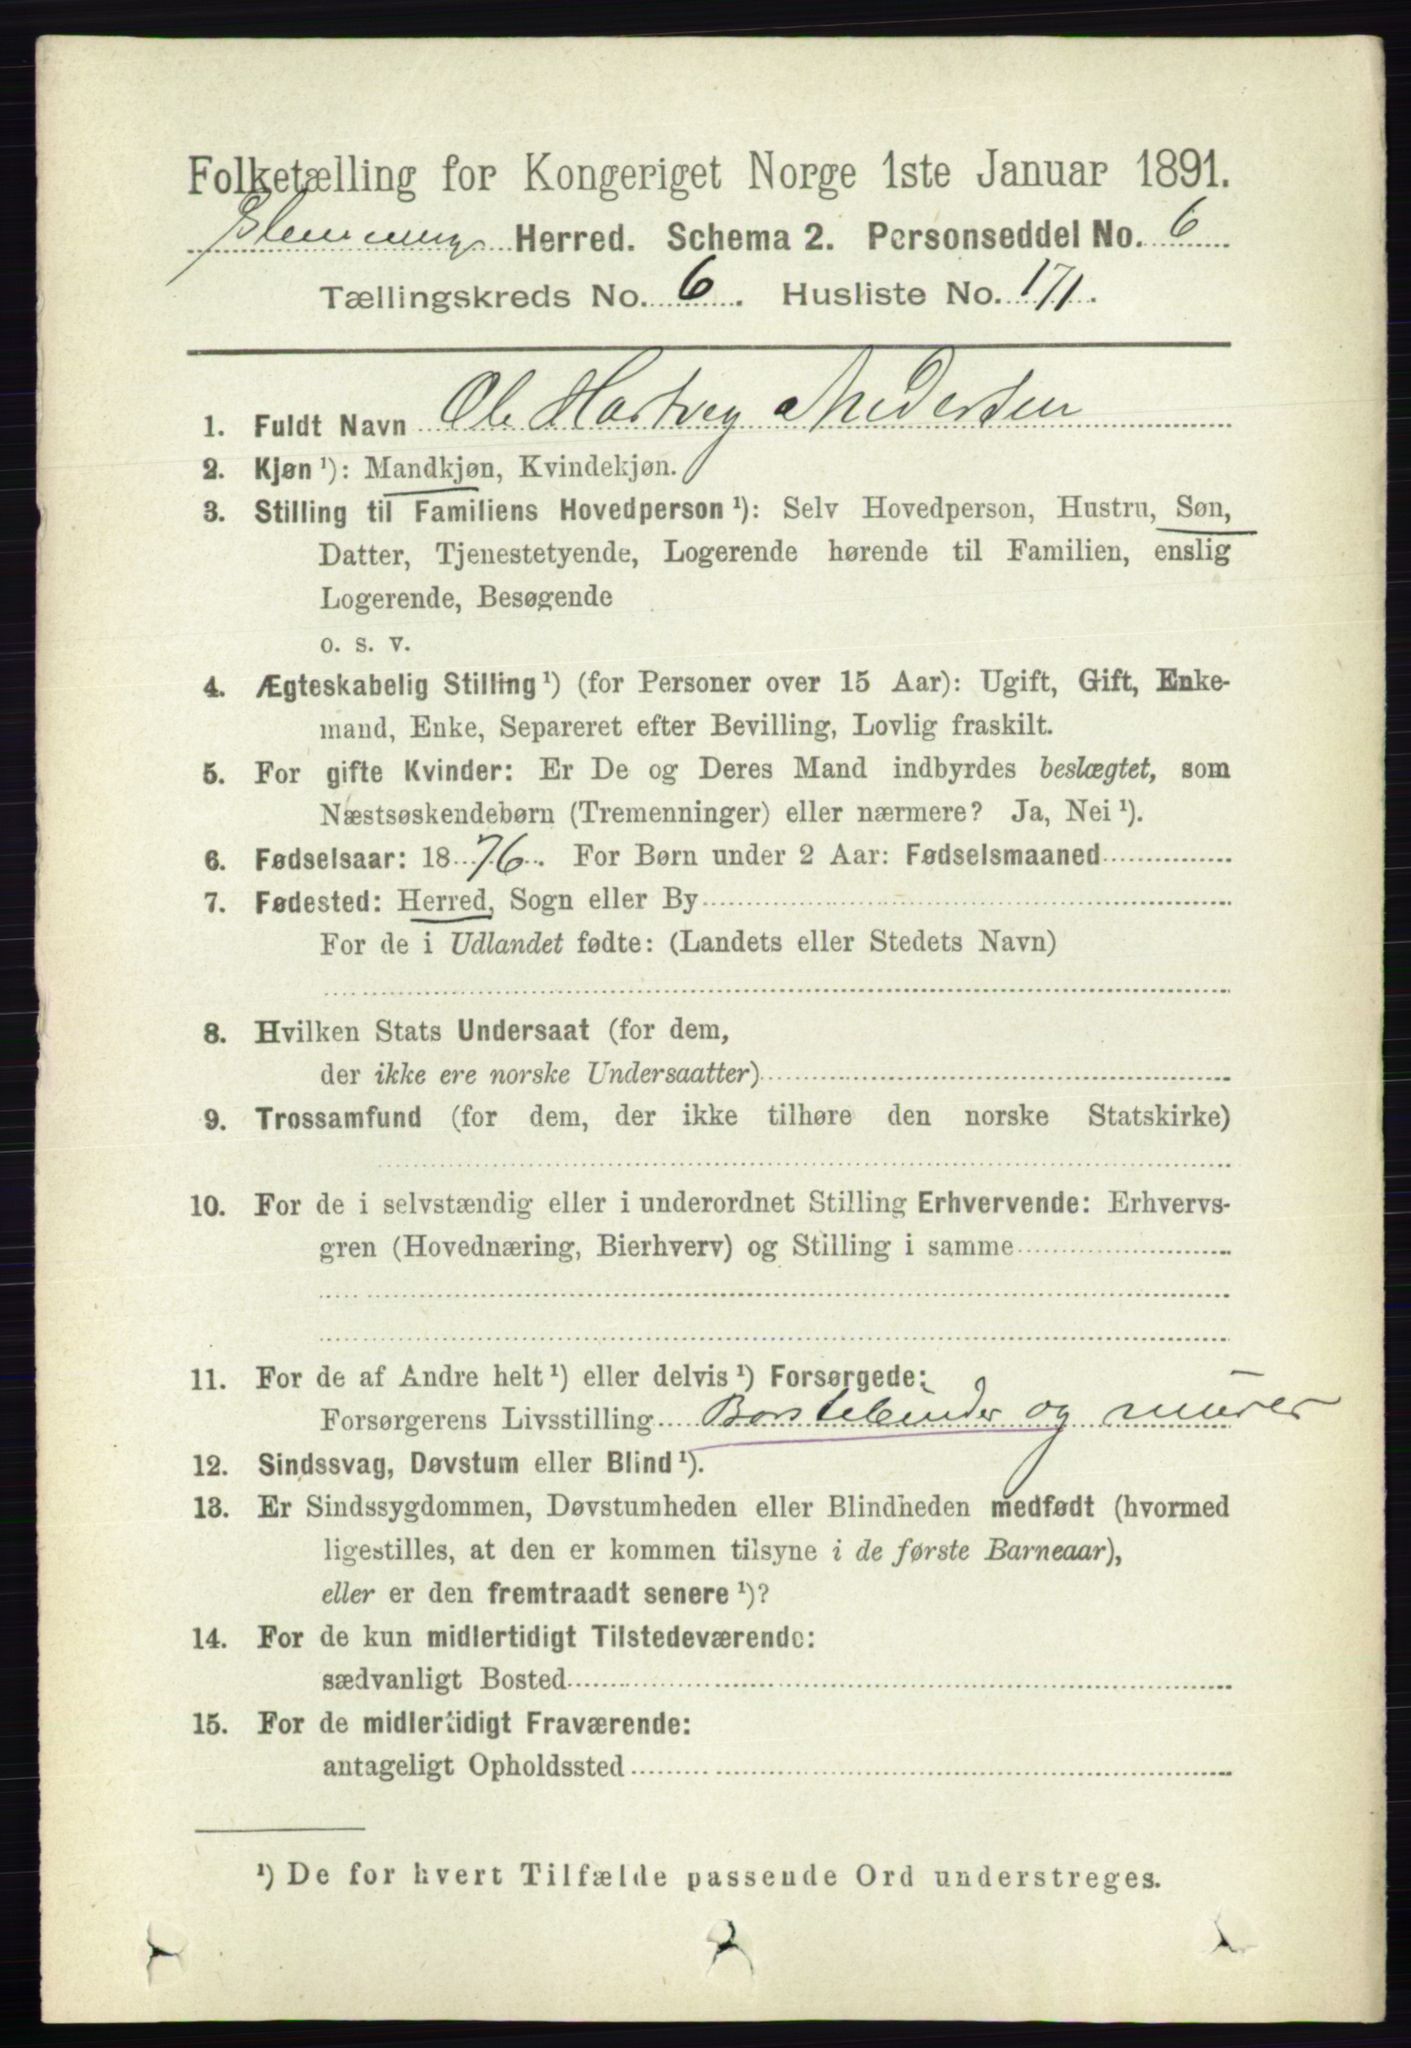 Folketælling for Kongeriget Norge 1ste Januar 1891.
Glemminge Herred. Schema 2. Personseddel No. 6
Tællingskreds No. 6. Husliste No. 171.
1. Fuldt Navn Ole Hartvig Andersen
2. Kjøn ¹): Mandkjøn, Kvindekjøn.
3. Stilling til Familiens Hovedperson ¹): Selv Hovedperson, Hustru, Søn,
Datter, Tjenestetyende, Logerende hørende til Familien, enslig
Logerende, Besøgende
o. s. v.
4. Ægteskabelig Stilling ¹) (for Personer over 15 Aar): Ugift, Gift, Enke-
mand, Enke, Separeret efter Bevilling, Lovlig fraskilt.
5. For gifte Kvinder: Er De og Deres Mand indbyrdes beslægtet, som
Næstsøskendebørn (Tremenninger) eller nærmere? Ja, Nei ¹).
6. Fødselsaar: 1876. For Børn under 2 Aar: Fødselsmaaned
7. Fødested: Herred, Sogn eller By
For de i Udlandet fødte: (Landets eller Stedets Navn)
8. Hvilken Stats Undersaat (for dem,
der ikke ere norske Undersaatter)
9. Trossamfund (for dem, der ikke tilhøre den norske Statskirke)
10. For de i selvstændig eller i underordnet Stilling Erhvervende: Erhvervs-
gren (Hovednæring, Bierhverv) og Stilling i samme
11. For de af Andre helt ¹) eller delvis ¹) Forsørgede:
Forsørgerens Livsstilling Børstebinder og murer
12. Sindssvag, Døvstum eller Blind ¹).
13. Er Sindssygdommen, Døvstumheden eller Blindheden medfødt (hvormed
ligestilles, at den er kommen tilsyne i de første Barneaar),
eller er den fremtraadt senere ¹)?
14. For de kun midlertidigt Tilstedeværende:
sædvanligt Bosted
15. For de midlertidigt Fraværende:
antageligt Opholdssted
¹) De for hvert Tilfælde passende Ord understreges.